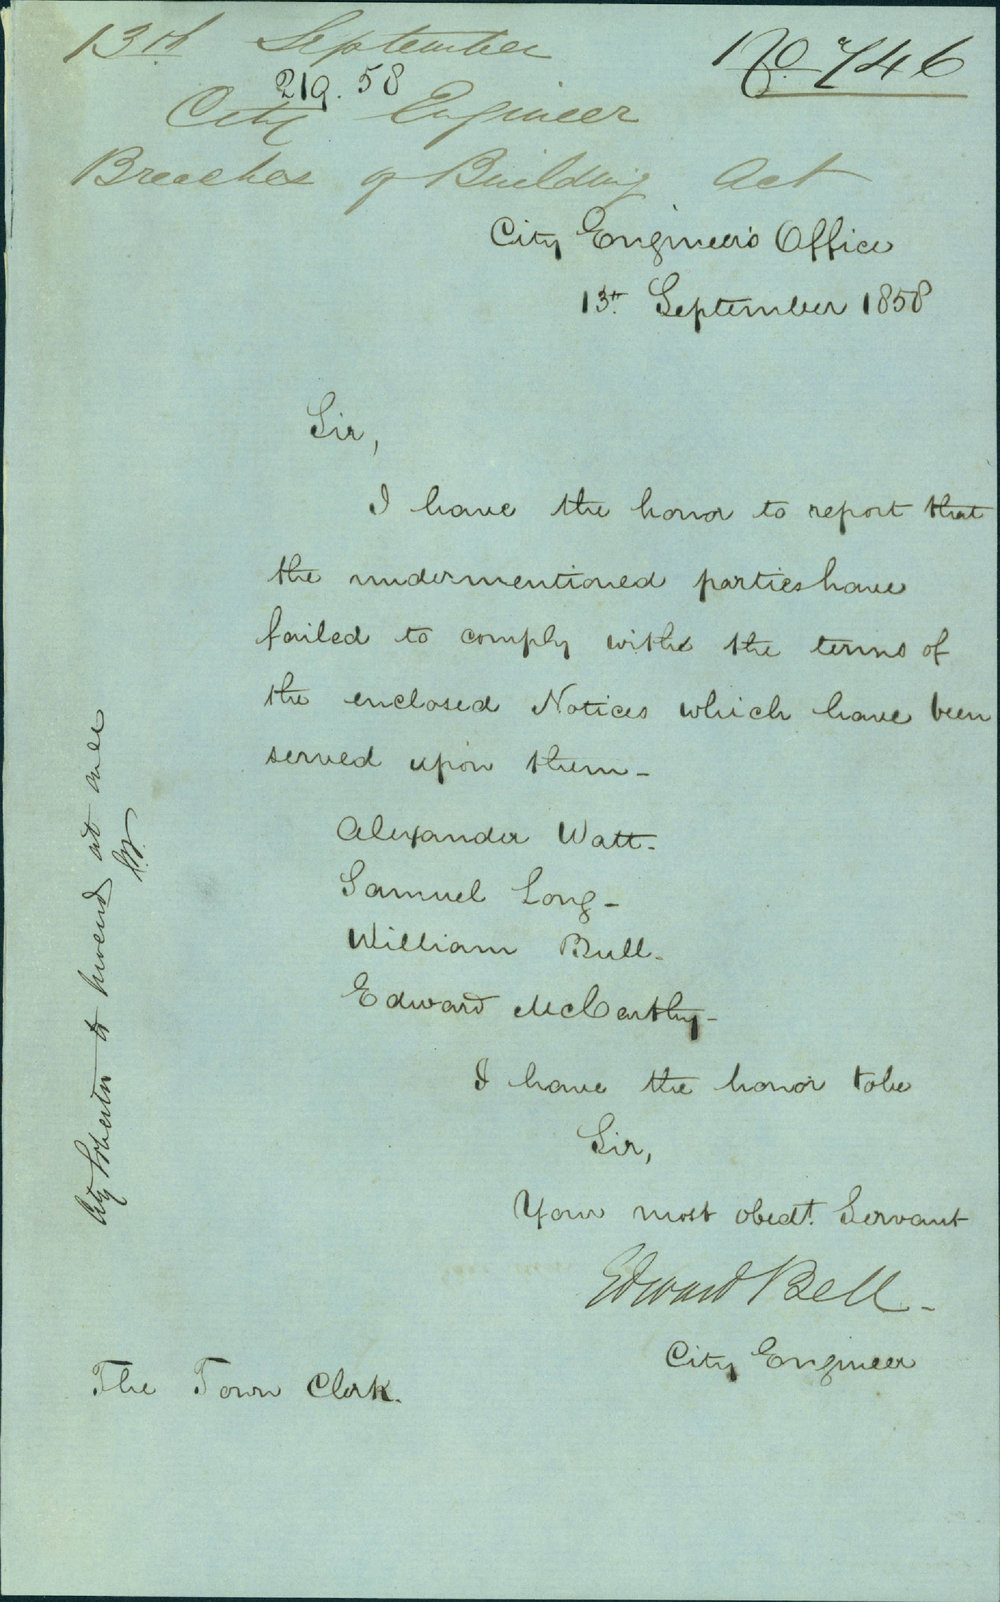 13th September
No. 746
219. 58
City Engineer
Breaches of Building Act
City Engineer's Office
13th September 1858
Sir,
I have the honor to report that
the undermentioned parties have
failed to comply with the terms of
the enclosed Notices which have been
served upon them -
Alexander Watt -
Samuel Long -
William Bull -
Edward McCarthy -
I have the honor to be
Sir,
Your most obedt. Servant
Edward Bell -
City Engineer
The Town Clerk.
City to at once